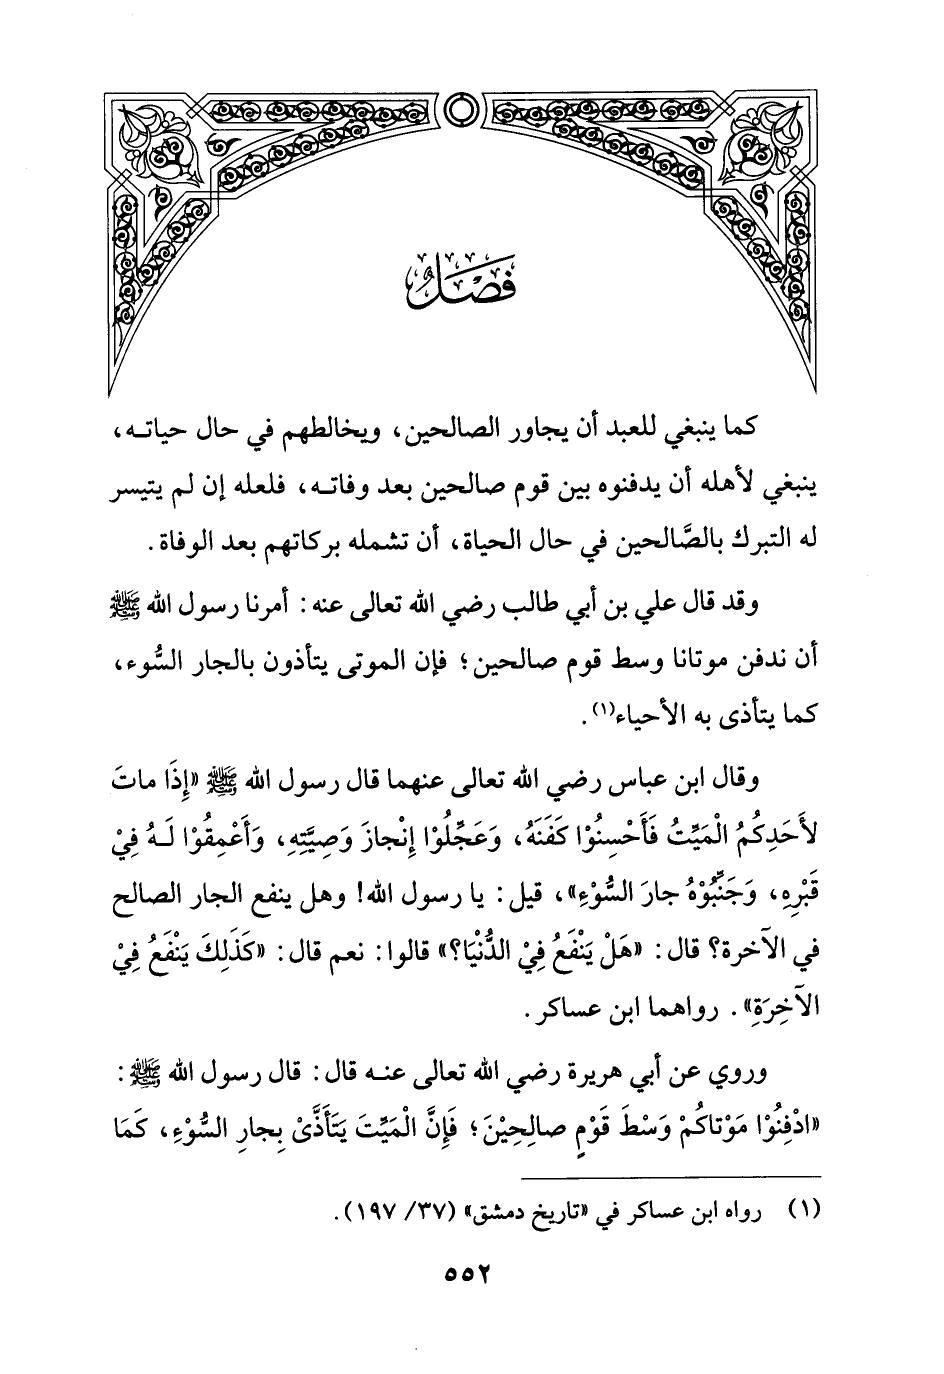 فَصَلُ
كما ينبغي للعبد أن يجاور الصالحين، ويخالطهم في حال حياته،
ينبغي لأهله أن يدفنوه بين قوم صالحين بعد وفاته، فلعله إن لم يتيسر
له التبرك بالصَّالحين في حال الحياة، أن تشمله بركاتهم بعد الوفاة.
وقد قال علي بن أبي طالب رضي الله تعالى عنه: أمرنا رسول الله ﷺ
أن ندفن موتانا وسط قوم صالحين؛ فإن الموتى يتأذون بالجار السُّوء،
كما يتأذى به الأحياء(١).
وقال ابن عباس رضي الله تعالى عنهما قال رسول الله ﷺ «إِذَا ماتَ
لأَحَدِكُمُ الْمَيِّتُ فَأَحْسِنُوْا كَفَنَهُ، وَعَجِّلُوْا إِنْجازَ وَصِيَّتِهِ، وَأَعْمِقُوْا لَهُ فِيْ
قَبْرِهِ، وَجَنِّبُوْهُ جارَ السُّوْءِ»، قيل: يا رسول الله! وهل ينفع الجار الصالح
في الآخرة؟ قال: «هَلْ يَنْفَعُ فِيْ الدُّنْيَا؟» قالوا: نعم قال: «كَذَلِكَ يَنْفَعُ فِيْ
الآخِرَةِ». رواهما ابن عساكر.
وروي عن أبي هريرة رضي الله تعالى عنه قال: قال رسول الله ﷺ:
«ادْفِنُوْا مَوْتاكُمْ وَسْطَ قَوْمٍ صالِحِيْنَ؛ فَإِنَّ الْمَيِّتَ يَتَأَذَّىْ بِجارِ السُّوْءِ، كَمَا
(١) رواه ابن عساكر في «تاريخ دمشق» (٣٧/ ١٩٧).
٥٥٢